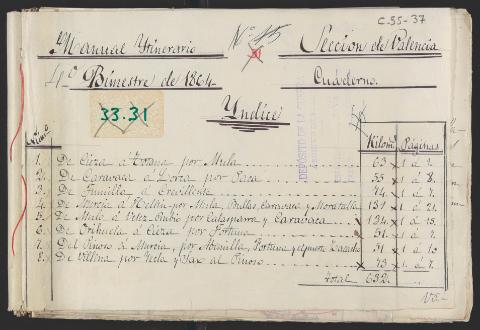 C.55-37
Manual Itinerario
Nº 45
Seccion de Valencia
4º Bimestre de 1864
Cuaderno.
33.31
Yndice
Kilom. Páginas
1. De Cieza á Totana por Mula 63 1 á 2.
2. De Caravaca á Lorca por Paca 55 1 á 8.
3. De Jumilla á Crevillente 74 1 á 7.
4. De Murcia á Hellin por Mula, Bullas, Caravaca y Moratalla 131 1 á 21.
5. De Mula á Velez-Rubio por Calasparra y Caravaca 134 1 á 15.
6. De Orihuela á Cieza por Fortuna 51 1 á 7.
7. Del Pinoso á Murcia, por Abanilla, Fortuna y 51 1 á 10
8. De Villena por Yecla y Jax al Pinoso 73 1 á 7.
Total 632